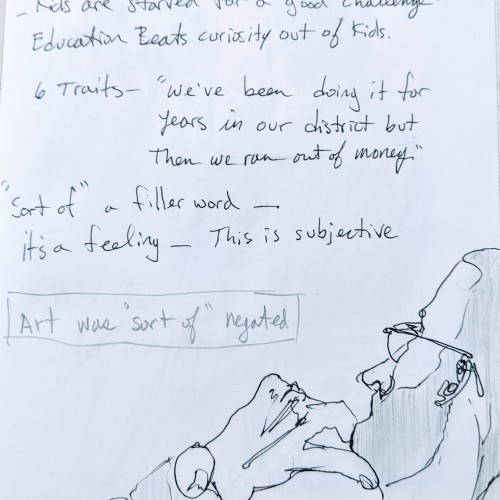 - Kids are starved for a good challenge
Education Beats curiosity out of Kids.
6 Traits - "We've been doing it for
years in our district but
Then we ran out of money."
"Sort of" a filler word —
it's a feeling — This is subjective
Art was "sort of" negated